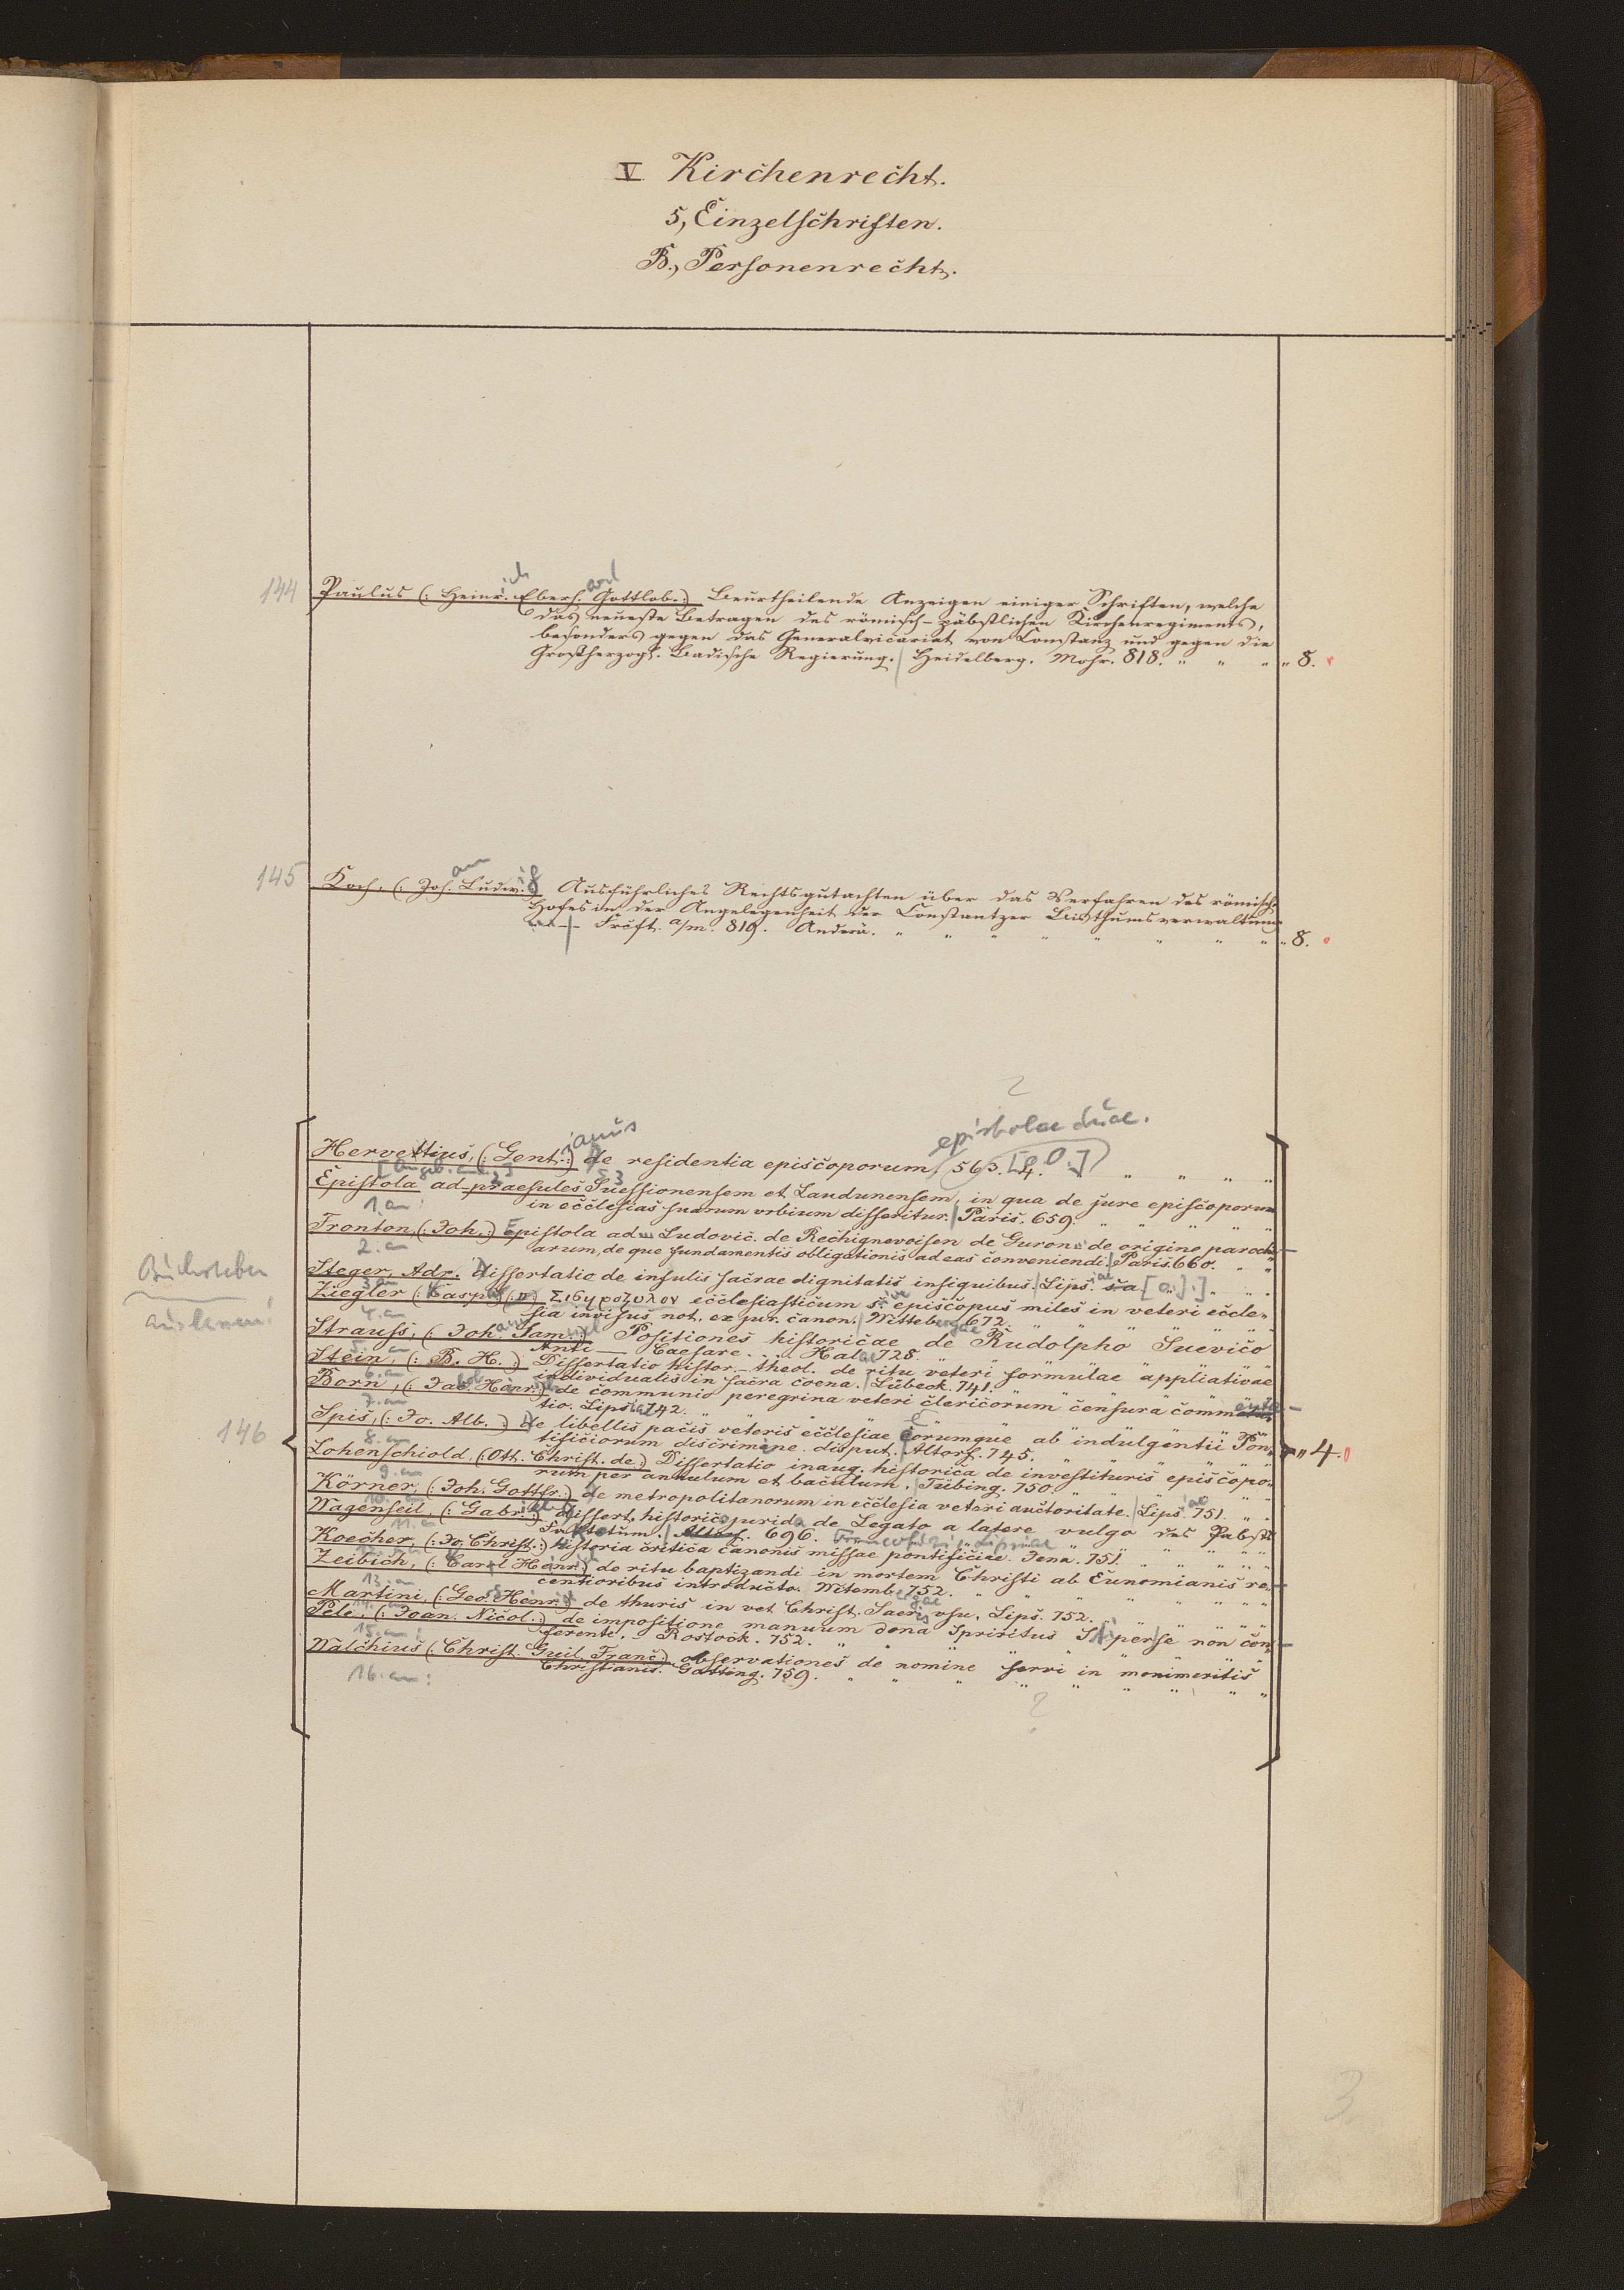 V Kirchenrecht.
5, Einzelschriften.
B., Personenrecht.
144 Paulus (: Heinr. Eberh. Gottlob. :) Beurtheilende Anzeigen einiger Schriften, welche
das neueste Betragen des römisch-päbstlichen Kirchenregiments,
besonders gegen das Generalvicariat von Constanz und gegen die
Großherzogl. Badische Regierung. Heidelberg. Mohr. 818. „ „ „ „ 8.
145 Koch, (: Joh. Ludw. Ausführliches Rechtsgutachten über das Verfahren des römisch.
Hofes in der Angelegenheit der Constantzer Bisthumsverwaltung
Frcft. a/m. 819. Andreä. „ „ „ „ „ „ „ „ „ 8.
epistolae duae.
Hervettius, (: Gent. :) ianus de residentia episcoporum, 563. [4.°.] „ „ „ „
Epistola ad praesules Suessionensem et Laudunensem, in qua de jure episcoporum
in ecclesias suarum vrbium disseritur. Paris. 659. „ „ „ „ „
1. an
Fronton, (: Joh. :) Epistola ad Ludovic. de Rechignevoisen de Guron de origine paroch-
arum, de que fundamentis obligationis ad eas conveniendi. Paris. 660. „ „
2. an
Steger, Adr. Dissertatio de insulis sacrae dignitatis insiquibus. Lips. s. a [a.]. „ „ „
3. an
Ziegler (: Casp. :) Σιδηροξυλον ecclesiasticum s. episcopus miles in veteri eccle-
sia invisus not. ex jur. canon. Wittebergae 672. „ „ „ „ „
4. an
Strauss, (: Joh. Sam. :) Positiones historicae de Rudolpho Suevico
Anti — Caesare. Halae 728. „ „ „ „ „ „
5. an
Stein, (: B. H. :) Dissertatio histor.-theol. de ritu veteri formulae appliativae
individualis in sacra coena. Lübeck. 741. „ „ „ „ „
6. an
Born, (: Jac. Henr. :) de communio peregrina veteri clericorum censura commenta-
tio. Lips. 742. „ „ „ „ „ „
7. an
Bücherleben
auslernen!
146 Spis, (: Jo. Alb. :) de libellis pacis veteris ecclesiae eorumque ab indulgentii Pon-
tificiorum discrimine. disput. Altorf. 745. „ „ „ „ „ „ 4.
8. an
Lohenschiold, (Ott. Christ. de :) Dissertatio inaug. historica de investituris episcopo-
rum per annulum et baculum, Tübing. 750. „ „ „ „ „
9. an
Körner, (: Joh. Gottfr. :) de metropolitanorum in ecclesia veteri auctoritate. Lips. 751. „ „
10. an
Wagenseil, (: Gabr. :) dissert. historico jurida de Legato a latere vulgo des Pabsts
696. „ „ „ „
11. an
Koecher, (: Jo. Christ. :) historia critica canonis missae pontificiae. Jena. 751. „ „ „ „
12. an
Zeibich, (: Carl Henr. :) de ritu baptizandi in mortem Christi ab Eunomianis re-
centioribus introducto. Witemb. 752. „ „ „ „ „
13. an
Martini, (: Geo. Henr. :) de thuris in vet Christ. Sacris vsu, Lips. 752. „ „ „ „
14. an
Pele, (: Joan. Nicol. :) de impositione manuum dona Spriritus S. per se non con-
ferente. - Rostock. 752. „ „ „ „ „
15. an:
Walchius (: Christ. Guil. Franc. :) observationes de nomine servi in monimeritis
Christianis. Gotting. 759. „ „ „ „ „ „
16. an:
3